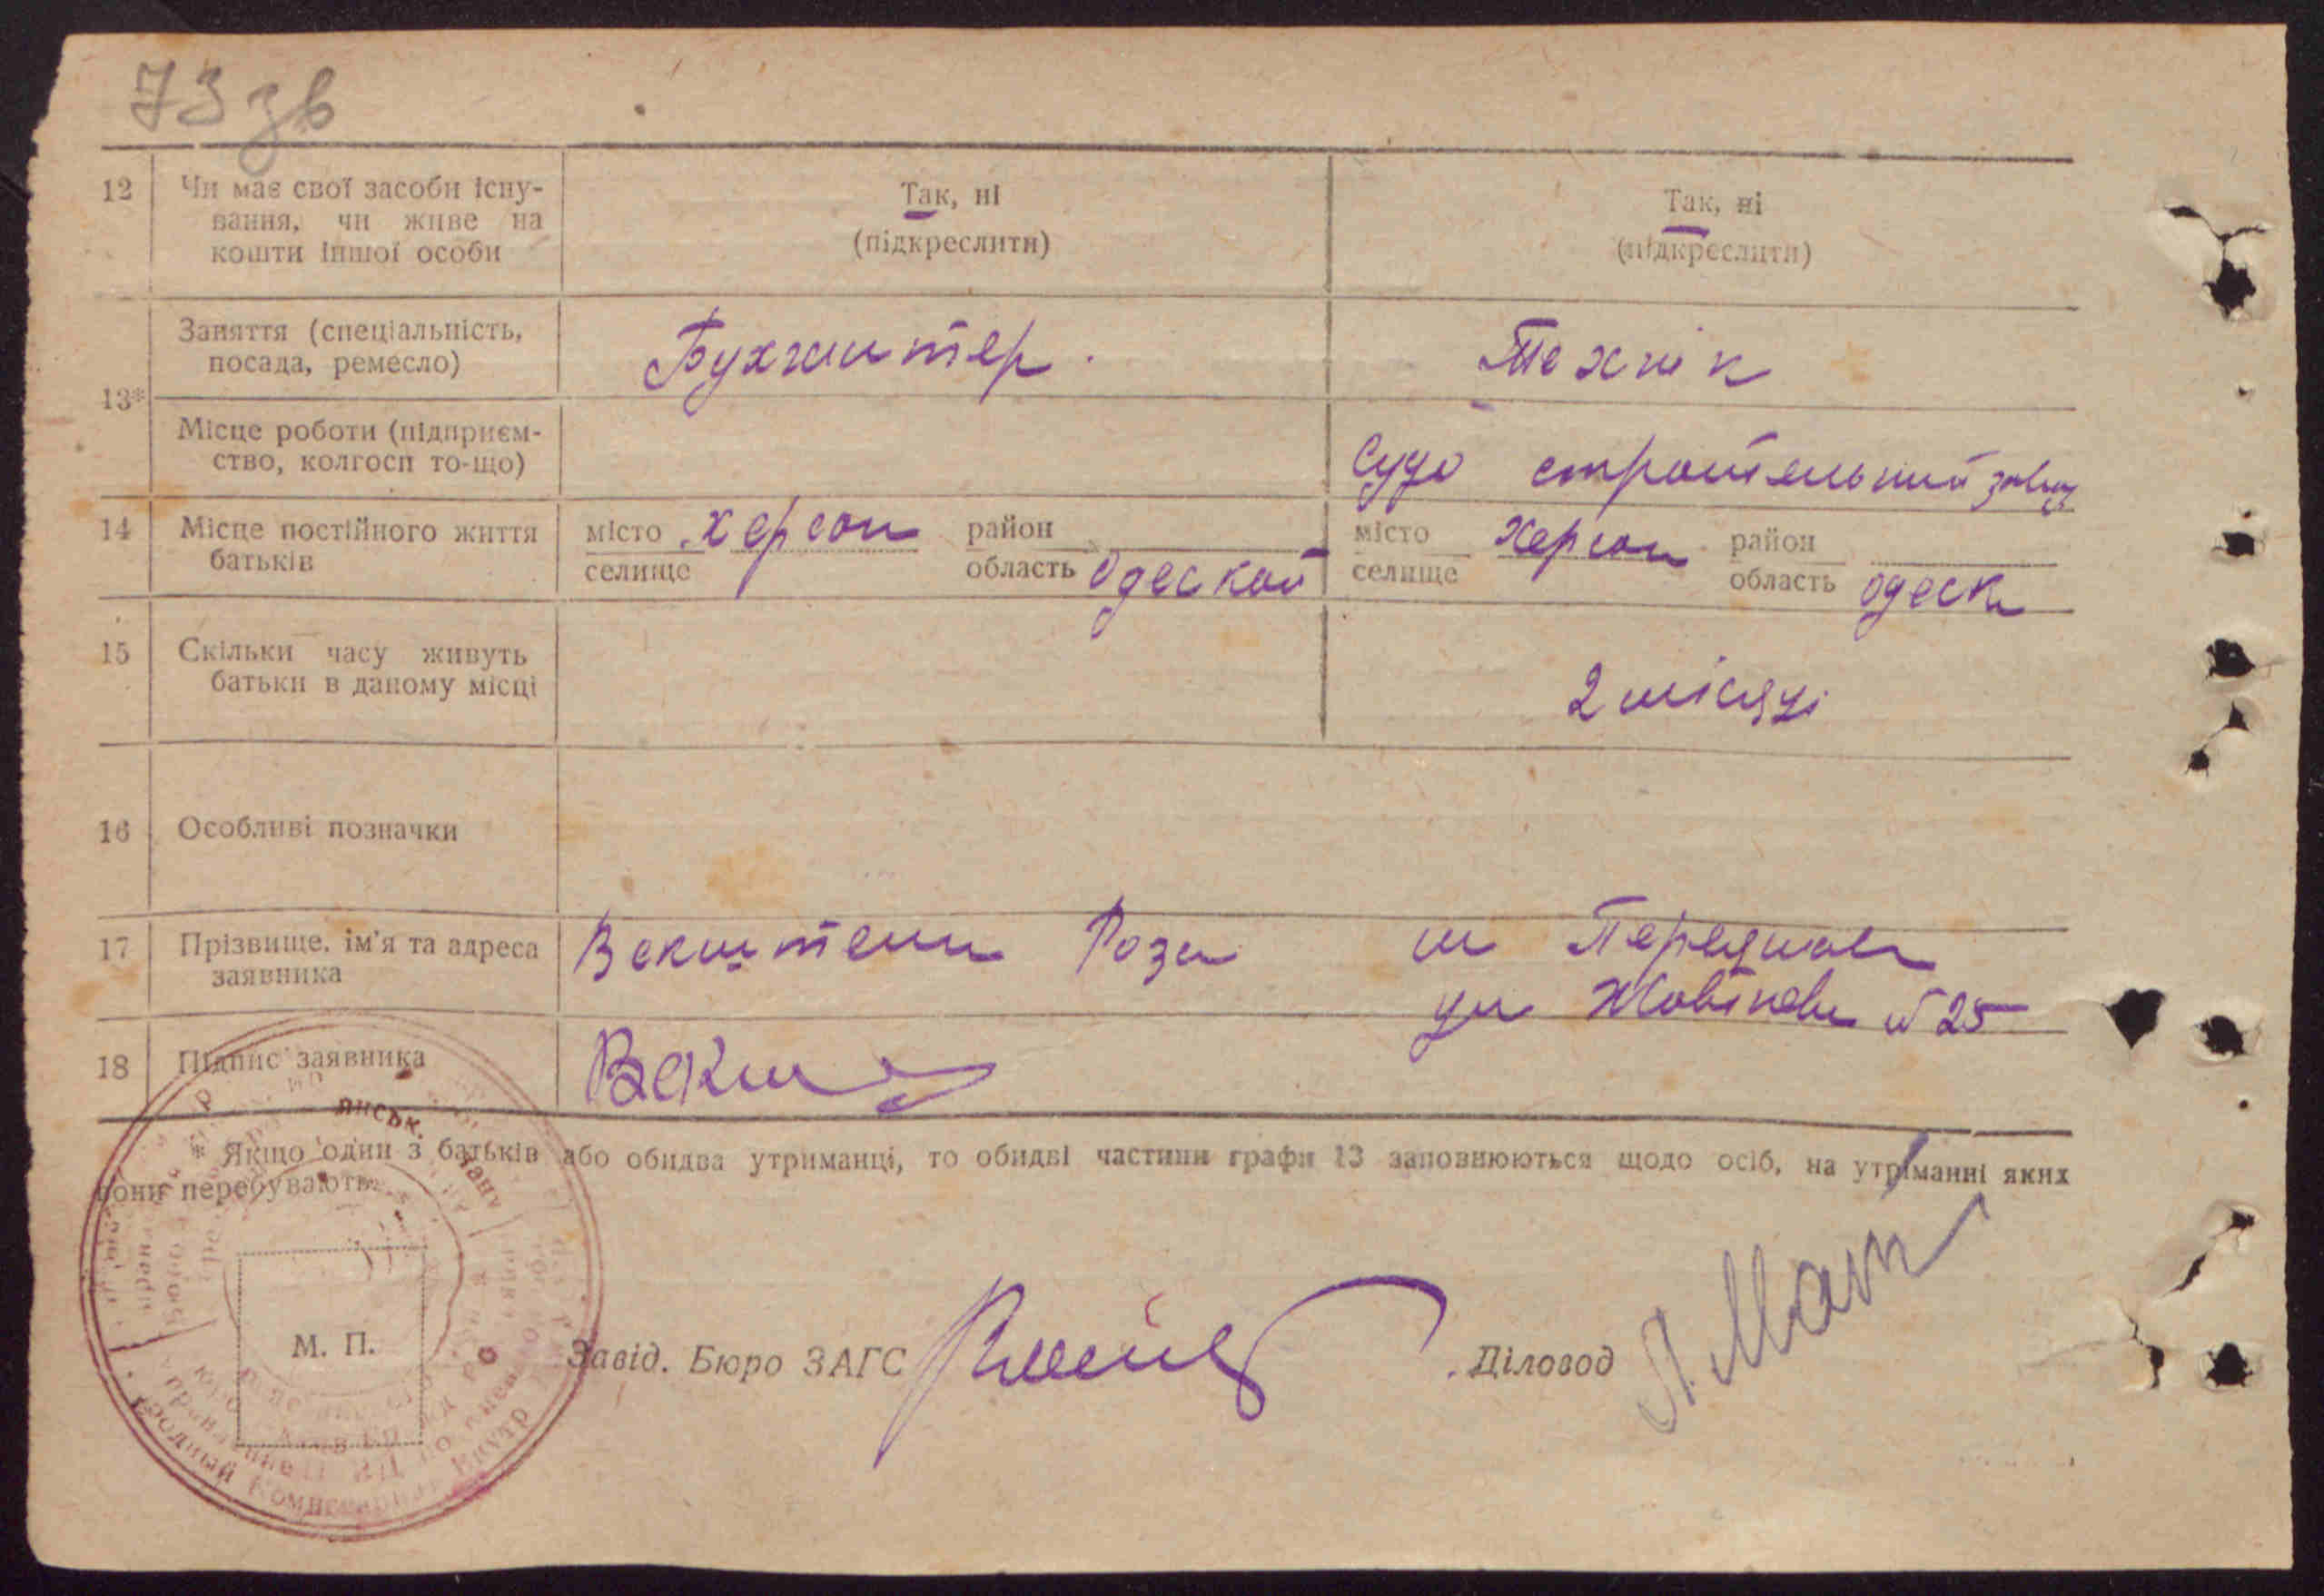 73 зв
12 Чи має свої засоби існу-
вання, чи живе на
кошти іншої особи
Так, ні
(підкреслити)
Так, ні
(підкреслити)
13*
Заняття (спеціальність,
посада, ремесло)
Бухгалтер.
Технік
Місце роботи (підприєм-
ство, колгосп то-що)
Судо строительний завод
14 Місце постійного життя
батьків
місто Херсон район
селище область Одеской
місто Херсон район
селище область Одеск
15 Скільки часу живуть
батьки в даному місці
2 місяці
16 Особливі позначки
17 Прізвище, ім'я та адреса
заявника
Векштеин Роза
ул Жовтнева № 25
18 Підпис заявника
Векш
* Якщо один з батьків або обидва утриманці, то обидві частини графи 13 заповнюються щодо осіб, на утріманні яких
вони перебувають.
М. П.
Завід. Бюро ЗАГС
Діловод